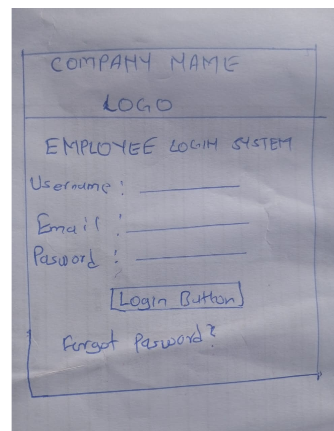 COMPANY NAME
LOGO
EMPLOYEE LOGIN SYSTEM
Username :
Email :
Pasword :
[Login Button]
Forgot Pasword?